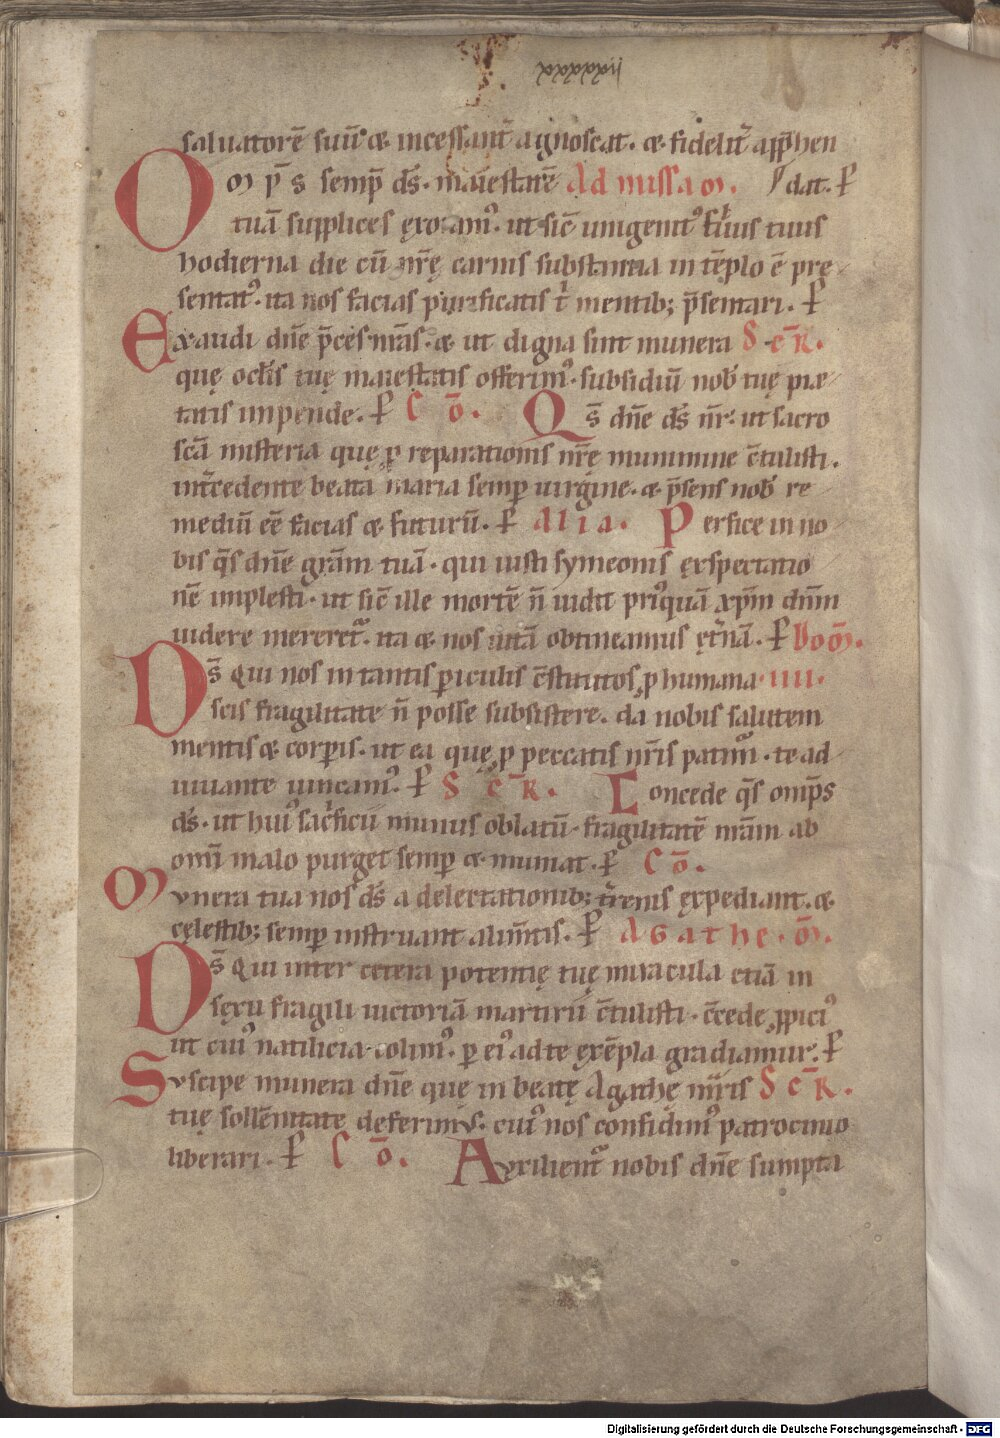 saluatorē suū ⁊ incessant̄ agnoscat. ⁊ fidelit̄ app̄hen
Om̄p̄s semp̄ d̄s. maiestatē Ad missam. dat. P̄
tuā supplices ęxoramꝰ. ut sic̄ unigenitꝰ filius tuus
hodierna die cū nr̄ę carnis substantia in tēplo ē pre
sentatꝰ. ita nos facias purificatis t̄ mentib; p̄sentari. P̄
Exaudi dn̄e p̄ces nr̄as. ⁊ ut digna sint munera S ec̄R.
quę ocl̄is tuę maiestatis offerimꝰ. subsidiū nob̄ tuę piæ
tatis impende. P̄ C ō. Qs̄ dn̄e d̄s nr̄. ut sacro
sc̄a misteria quę ꝓ reparationis nr̄ę munimine c̄tulisti.
int̄cedente beata maria semp̄ uirgine. ⁊ p̄sens nob̄ re
mediū ēē facias ⁊ futurū. P̄ Alia. Perfice in no
bis q̄s dn̄e grām tuā. qui iusti symeonis ęxspectatio
nē implesti. ut sic̄ ille mortē n̄ uidit priꝰquā xp̄m dn̄m
uidere mereret᷑. ita ⁊ nos uitā obtineamus ęt̄nā. P̄ Dom̄.
Ds̄ qui nos in tantis ꝑiculis c̄stitutos ꝓ humana IIII.
scis fragilitate n̄ posse subsistere. da nobis salutem
mentis ⁊ corꝑis. ut ea quę ꝓ peccatis nr̄is patim᷑. te ad
iuuante uincamꝰ. P̄ S ec̄R. Concede q̄s omp̄s
d̄s. ut huiꝰ sac̄ficii munus oblatū. fragilitatē nr̄am ab
omī malo purget semꝑ ⁊ muniat. P̄ C ō.
Munera tua nos d̄s a delectationib; t̄renis ęxpediant. ⁊
cęlestib; semꝑ instruant alim̄tis. P̄ Agathe. m̄.
Ds̄ qui inter cetera potentię tuę miracula etiā in
sęxu fragili uictoriā martirii c̄tulisti. c̄cede ꝓpiciꝰ
ut cuiꝰ natilicia colimꝰ. ꝑ eiꝰ ad te ęxēpla gradiamur. P̄
Suscipe munera dn̄e quę in beatę Agathę mr̄is S ec̄R.
tuę sollēnitate deferimus. cuiꝰ nos confidimꝰ patrocinio
liberari. P̄ C ō. Auxilient᷑ nobis dn̄e sumpta
Digitalisierung gefördert durch die Deutsche Forschungsgemeinschaft - DFG